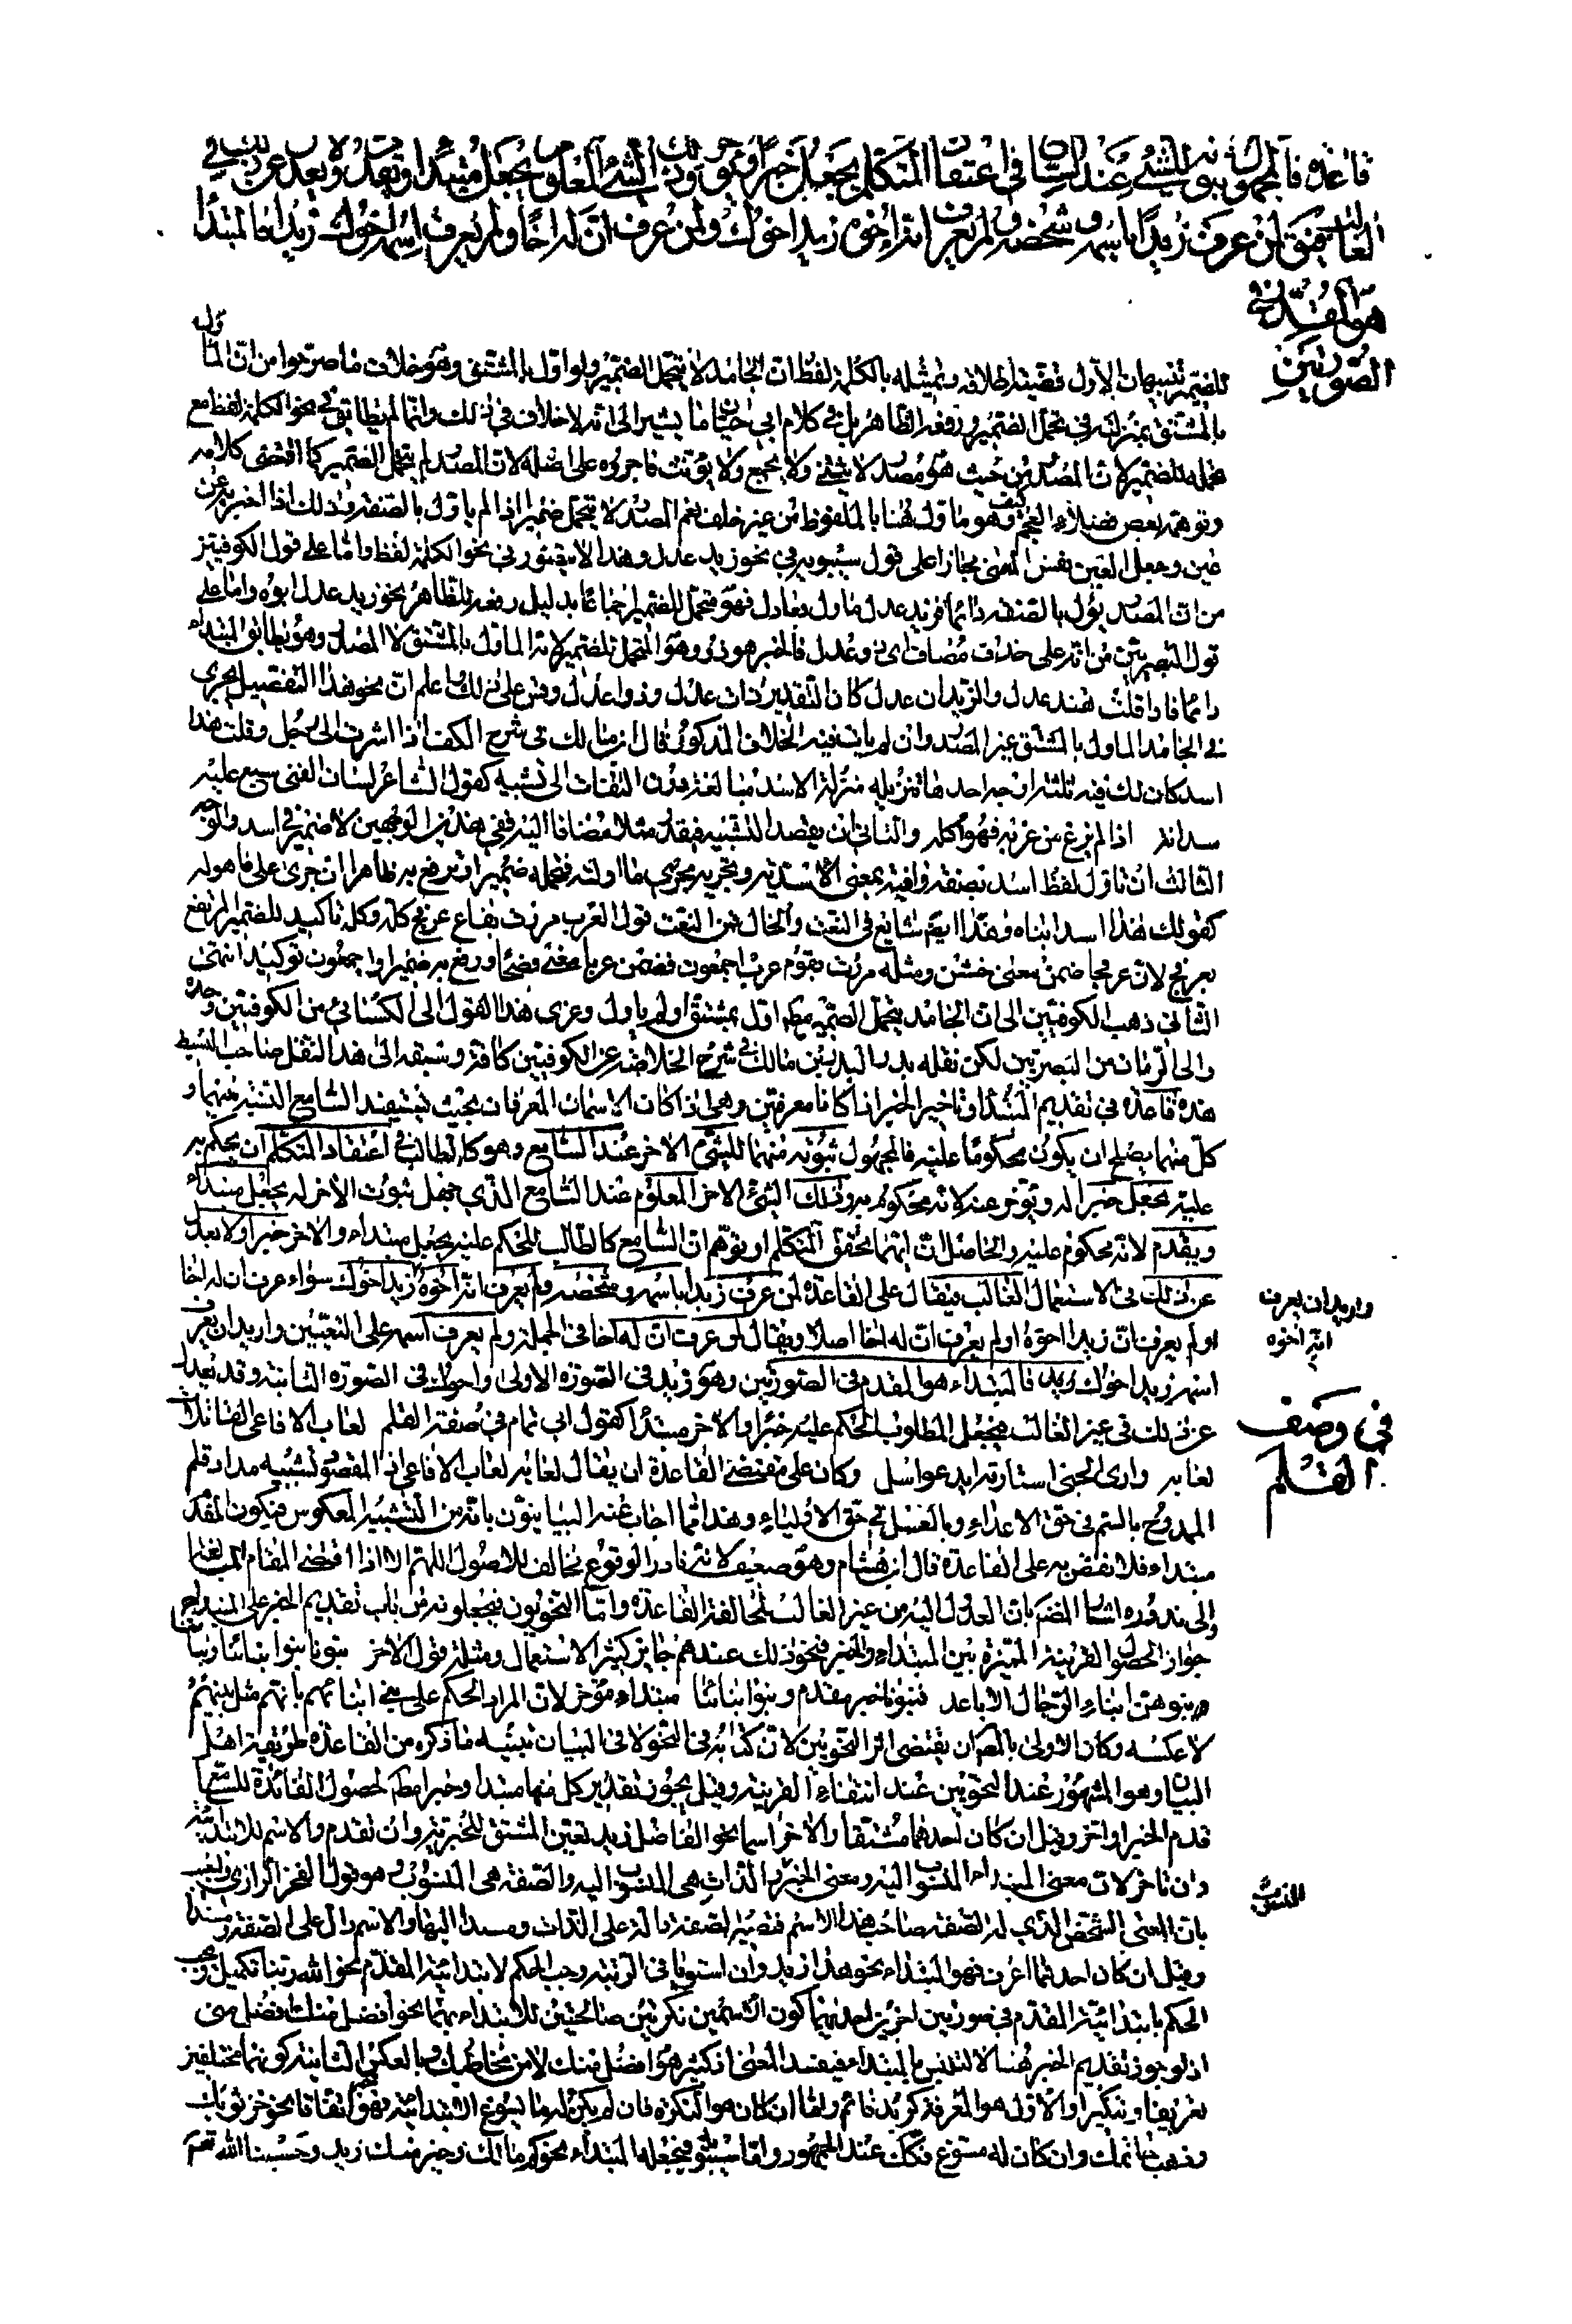 قاعدة فالمجهول ثبوته للشيء عند السامع في اعتقاد المتكلم يجعل خبرا ويؤخر وذلك الشيء المعلوم يجعل مبتدا ويقدم ولا يعدل عن ذلك في
الغالب فيقال لمن عرف زيدا باسمه وشخصه ولم يعرف انه اخوه زيد اخوك ولمن عرف ان له اخا ولم يعرف اسمه اخوك زيد فالمبتدا
هو المقدم في
الصورتين
للضمير تنبيهان الاول قضية اطلاقه وتمثيله بالكلمة لفظ ان الجامد لا يتحمل الضمير ولو اول بالمشتق وهو خلاف ما صرحوا من ان الماول
بالمشتق بمنزلته في تحمل الضمير ورفعه الظاهر بل في كلام ابي حيان ما يشير الى انه لا خلاف في ذلك وانما لم يطابق في نحو الكلمة لفظ مع
تحمله للضمير لان المصدر من حيث هو مصدر لا يثنى ولا يجمع ولا يؤنث فاجروه على اصله لان المصدر لم يتحمل الضمير كما اقتضى كلامه
وتوهمه بعض فضلاء العجم كيف وهو ماول هنا بالملفوظ من غير خلف نعم المصدر لا يتحمل ضميرا اذا لم ياول بالصفة وذلك اذا اخبر به عن
عين وجعل العين نفس المعنى مجازا على قول سيبويه في نحو زيد عدل وهذا لا يتصور في نحو الكلمة لفظ واما على قول الكوفيين
من ان المصدر يؤل بالصفة دائما فزيد عدل ماول بعادل فهو متحمل للضمير اجماعا بدليل رفعه للظاهر نحو زيد عدل ابوه واما على
قول البصريين من انه على حذف مضاف اي ذو عدل فالخبر هو ذو وهو المتحمل للضمير لانه الماول بالمشتق لا المصدر وهو يطابق المبتداء
دائما فاذا قلت هند عدل والزيدان عدل كان التقدير ذات عدل وذوا عدل وقس على ذلك واعلم ان نحو هذا التفصيل يجري
في الجامد الماول بالمشتق غير المصدر وان لم يات فيه الخلاف المذكور قال ابن مالك في شرح الكفاية اذا اشرت الى رجل وقلت هذا
اسد كان لك فيه ثلثة اوجه احدها تنزيله منزلة الاسد مبالغة دون التفات الى تشبيه كقول الشاعر لسان الفتى سبع عليه
سداته اذا لم يزغ من غربه فهو اكله والثاني ان يقصد التشبيه فيقدر مثلا مضافا اليه ففي هذين الوجهين لا ضمير في اسد والوجه
الثالث ان تاول لفظ اسد بصفة وافية بمعنى الاسدية وتجريه مجرى ما اولته فتحمله ضميرا او ترفع به ظاهرا ان جرى على ما هو له
كقولك هذا اسد ابناه وهذا ايضا شايع في النعت والحال فمن النعت قول العرب مررت بقاع عرفج كله وكله تاكيد للضمير المرتفع
بعرفج لان عرفجا ضمن معنى خشن ومثله مررت بقوم عرب اجمعون فضمن عربا معنى فصحا ورفع به ضميرا واجمعون توكيد انتهى
الثاني ذهب الكوفيين الى ان الجامد يتحمل الضمير مطلقا اول بمشتق او لم ياول وعزى هذا القول الى الكسائي من الكوفيين وحده
والى الرماني من البصريين لكن نقله بدر الدين بن مالك في شرح الخلاصة عن الكوفيين كافة وسبقه الى هذا النقل صاحب البسيط
هذه قاعدة في تقديم المبتدا وتاخير الخبر اذا كانا معرفتين وهي اذا كان الاسمان المعرفان بحيث يستفيد السامع النسبة منهما و
كل منهما يصلح ان يكون محكوما عليه فالمجهول ثبوته منهما للشيء الاخر عند السامع وهو كالطالب في اعتقاد المتكلم ان يحكم به
عليه يجعل خبرا له ويؤخر عنه لانه محكوم به وذلك الشيء الاخر المعلوم عند السامع الذي جهل ثبوت الاخر له يجعل مبتداء
ويقدم لانه محكوم عليه والحاصل ان ايهما تحقق المتكلم او توهم ان السامع كالطالب للحكم عليه يجعل مبتداء والاخر خبرا ولا يعدل
عن ذلك في الاستعمال الغالب فيقال على القاعدة لمن عرف زيدا باسمه وشخصه ولم يعرف انه اخوه زيد اخوك سواء عرف ان له اخا
واريد ان يعرف
انه اخوه
او لم يعرف ان زيدا اخوه او لم يعرف ان له اخا اصلا ويقال لمن عرف ان له اخا في الجملة ولم يعرف اسمه على التعيين واريد ان يعرف
اسمه زيد اخوك زيد فالمبتداء هو المقدم في الصورتين وهو زيد في الصورة الاولى واخوك في الصورة الثانية وقد يعدل
عن ذلك في غير الغالب فيجعل المطلوب الحكم عليه خبرا والاخر مبتدا كقول ابي تمام في صفة القلم لعاب الافاعي القاتلات
في وصف
القلم
لعابه وارى الجنى اشتارته ايد عواسل وكان على مقتضى القاعدة ان يقال لعابه لعاب الافاعي اذ المقصود تشبيه مداد قلم
الممدوح بالسم في حق الاعداء وبالعسل في حق الاولياء وهذا مما اجاب عنه البيانيون بانه من التشبيه المعكوس فيكون المقدم
مبتداء فلا نقض به على القاعدة قال ابن هشام وهو ضعيف لانه نادر الوقوع مخالف للاصول اللهم الا اذا اقتضى المقام المبالغة
والى ندوره اشار المصنف بان العدول اليه من غير الغالب لمخالفة القاعدة واما النحويون فيجعلونه من باب تقديم الخبر على المبتدا
جوازا لحصول القرينة المميزة بين المبتداء والخبر فنحو ذلك عندهم جايز كثير الاستعمال ومثله قول الاخر بنونا بنوا ابنائنا وبناتنا
بنوهن ابناء الرجال الاباعد فبنونا خبر مقدم وبنوا ابنائنا مبتداء مؤخر لان المراد الحكم على بني ابنائهم بانهم مثل بنيهم
لا عكسه وكان الاولى بالمص ان يقتضي اثر النحويين لان كتابه في النحو لا في البيان تنبيه ما ذكره من القاعدة طريقة اهل
البيان وهو المشهور عند النحويين عند انتفاء القرينة وقيل يجوز تقدير كل منهما مبتدا وخبرا مطلقا لحصول الفائدة للسامع
قدم الخبر او اخر وقيل ان كان احدهما مشتقا والاخر اسما نحو الفاضل زيد تعين المشتق للخبرية وان تقدم والاسم للابتدائية
وان تاخر لان معنى المبتداء المنسوب اليه ومعنى الخبر والذات هي المنسوب اليه والصفة هي المنسوب وهو قول الفخر الرازي
المنسوب
بان المعنى الشخص الذي له الصفة صاحب هذا الاسم فتصير الصفة دالة على الذات ومسندا اليها والاسم دال على الصفة ومسندا
وقيل ان كان احدهما اعرف فهو المبتداء نحو هذا زيد وان استويا في الرتبة وجب الحكم لابتدائية المقدم نحو الله ربنا تكميل وجب
الحكم بابتدائية المقدم في صورتين اخريين احديهما كون الاسمين نكرتين صالحتين للابتداء بهما نحو افضل منك افضل مني
اذ لو جوز تقديم الخبر هنا لالتبس بالمبتداء فيفسد المعنى اذ كثير هو افضل منك لا من مخاطبك وبالعكس الثانية كونهما مختلفين
تعريفا وتنكيرا والاول هو المعرفة كزيد قائم واما ان كان هو النكرة فان لم يكن له ما يسوغ الابتدائية فهو خبر اتفاقا نحو خز ثوبك
وذهب خاتمك وان كان له مسوغ فكذلك عند الجمهور واما سيبويه فيجعله المبتداء نحو كم مالك وخير منك زيد وحسبنا الله